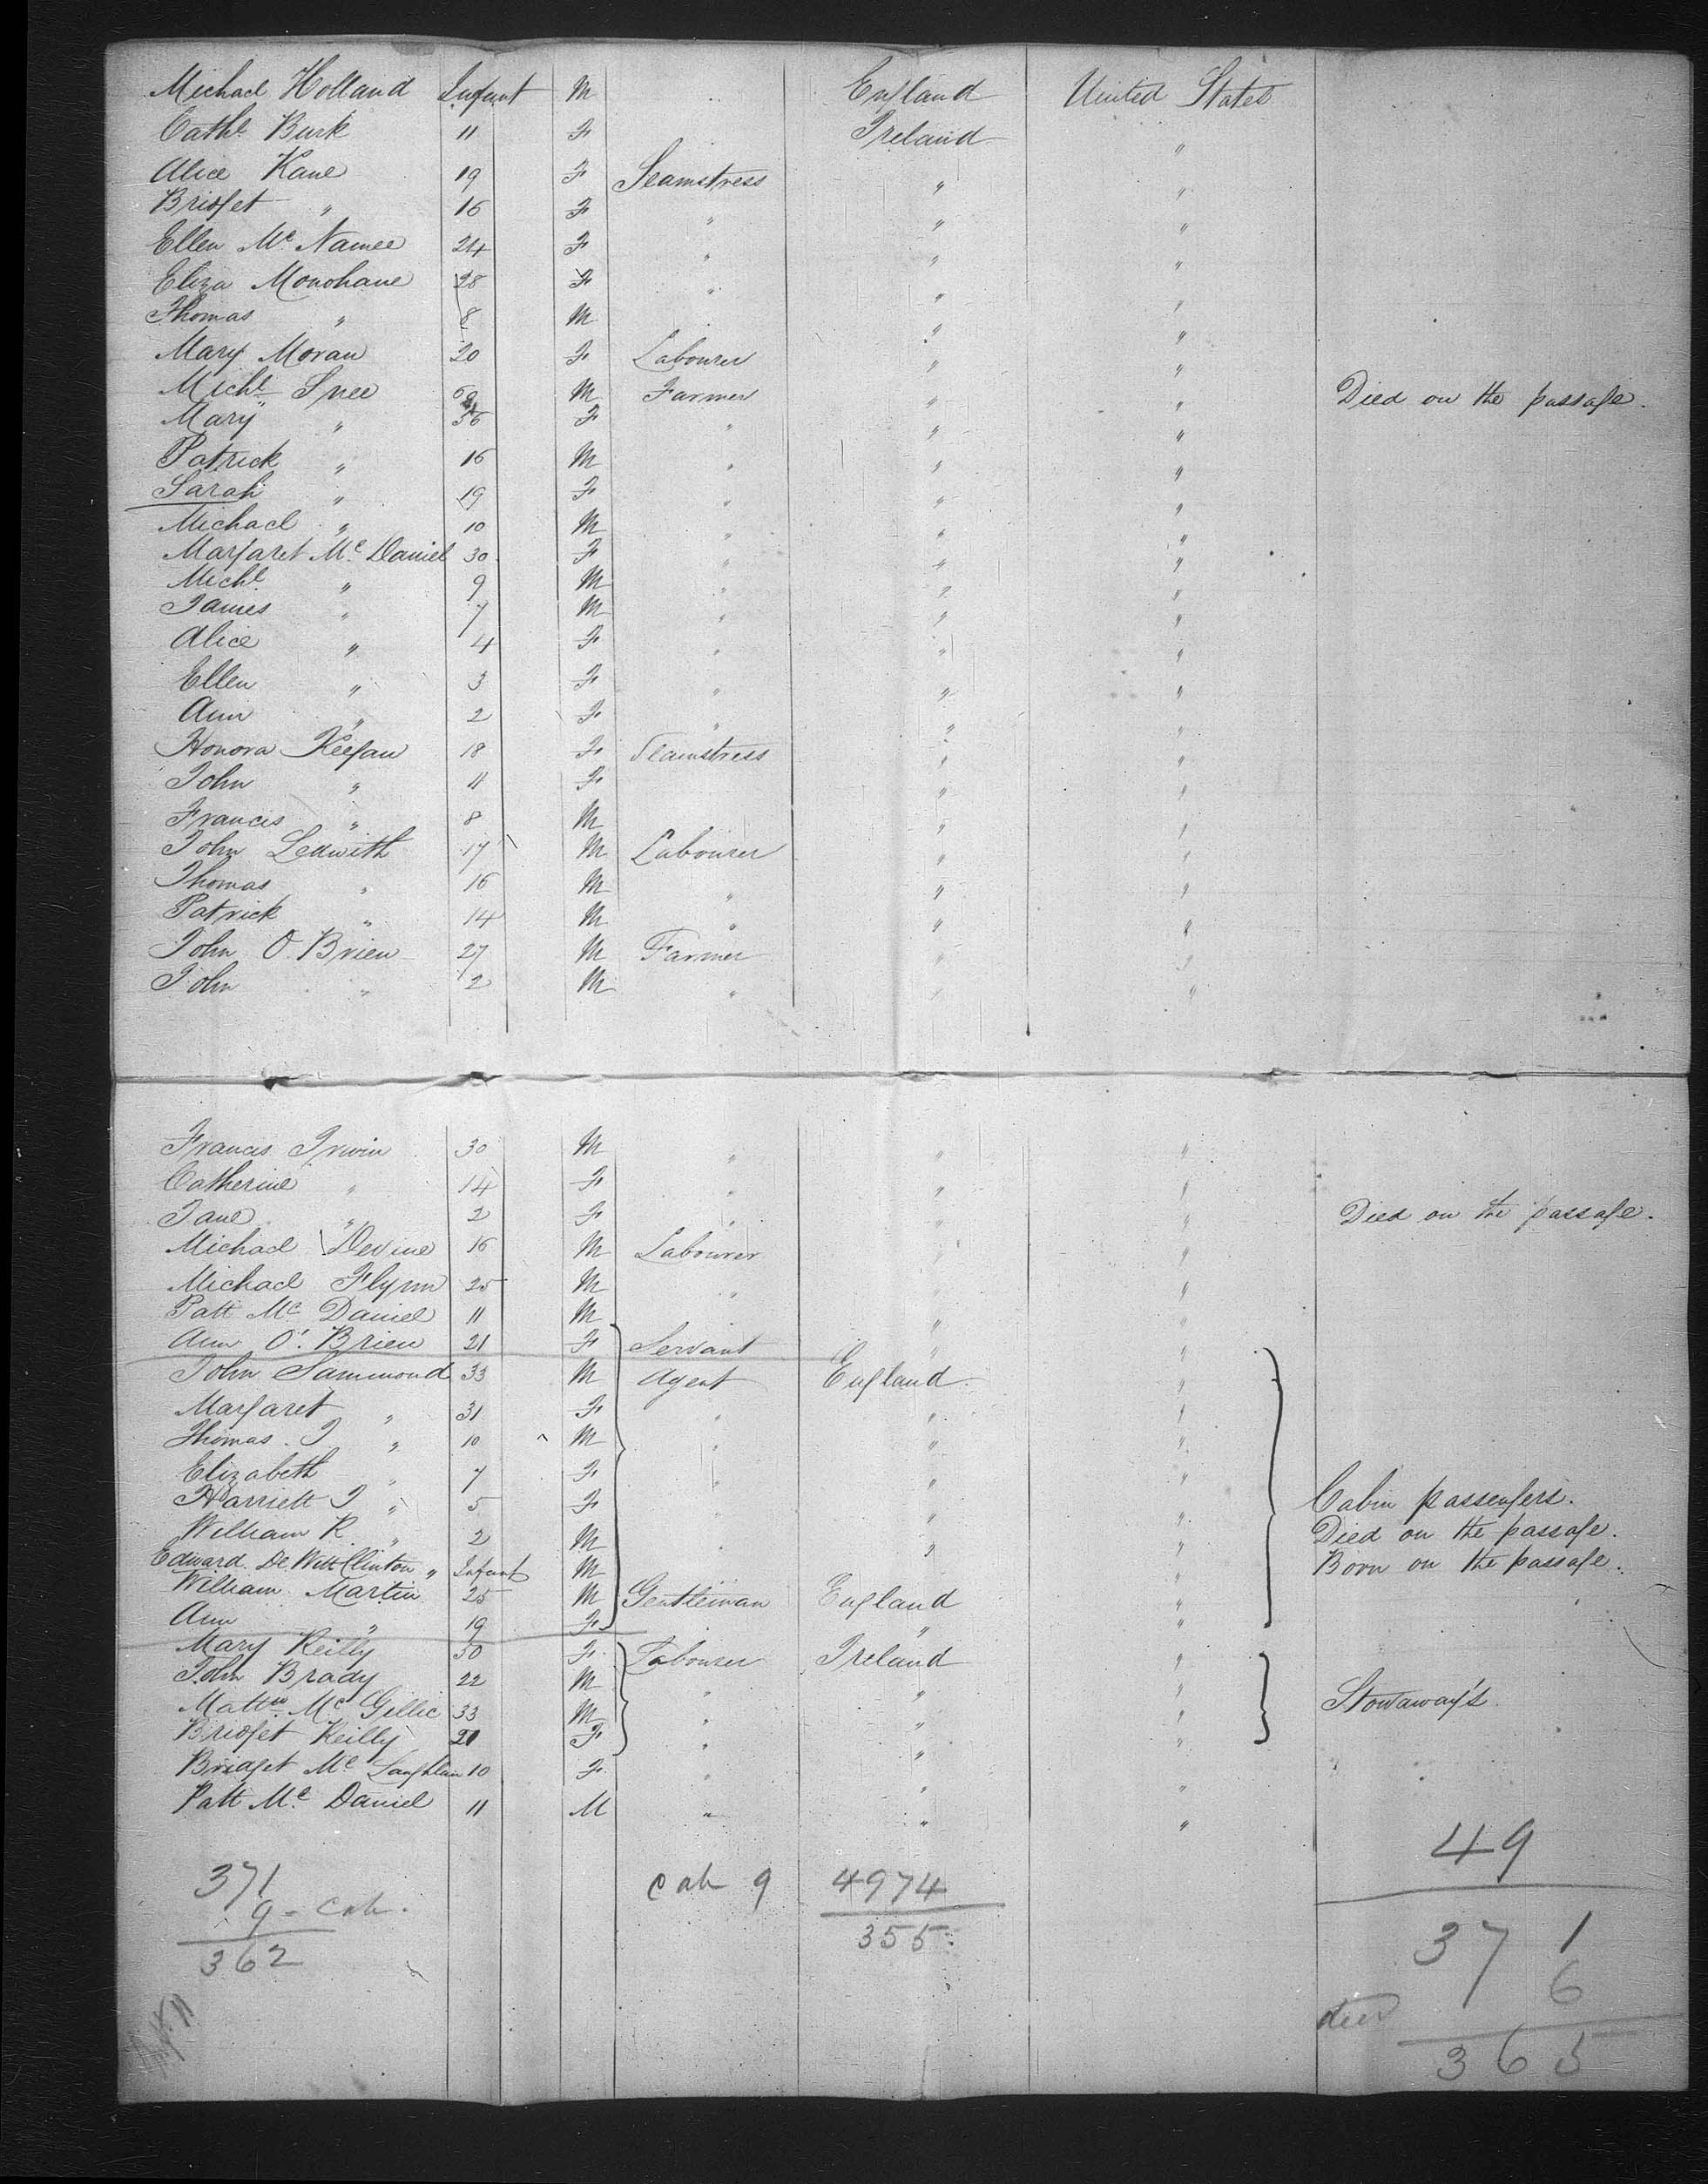 Michael Holland Infant M " England United States
Cathe Burk 11 F Ireland "
Alice Kane 19 F Seamstress " "
Bridget " 16 F " " "
Ellen Mc Namee 24 F " " "
Eliza Monohane 28 F " " "
Thomas " 8 M " "
Mary Moran 20 F Labourer " "
Michl Snee M Farmer " " Died on the passage.
Mary " 36 F " " "
Patrick " 16 M " " "
Sarah " 19 F " " "
Michael " 10 M " " "
Margaret Mc Daniel 30 F " " "
Michl " 9 M " " "
James " 7 M " " "
Alice " 4 F " " "
Ellen " 3 F " " "
Ann " 2 F " " "
Honora Keegan 18 F Seamstress " "
John " 11 F " "
Francis " 8 M " "
John Ledwith 17 M Labourer " "
Thomas " 16 M " " "
Patrick " 14 M " " "
John O'Brien 27 M Farmer " "
John " 2 M " " "
Francis Irwin 30 M " " "
Catherine " 14 F " " "
Jane " 2 F " " " Died on the passage.
Michael Devine 16 M Labourer " "
Michael Flynn 25 M " " "
Patt Mc Daniel 11 M " "
Ann O'Brien 21 F Servant " "
John Sammond 33 M Agent England "
Margaret " 31 F " " "
Thomas J " 10 M " " "
Elizabeth " 7 F " " "
Harriett J " 5 F " " " Cabin passengers.
William R. " 2 M " " " Died on the passage.
Edward De Witt Clinton " Infant M " Born on the passage.
William Martin 25 M Gentleman England "
Ann " 19 F " "
Mary Reilly 50 F Labourer Ireland "
John Brady 22 M " " "
Mattw Mc Gillic 33 M " " " Stowaway's
Bridget Reilly F " " "
Bridget Mc Laughlan 10 F " " "
Patt Mc Daniel 11 M " " "
49
371 cab 9 4974
9 - cab. 355
362
371
6
died
365